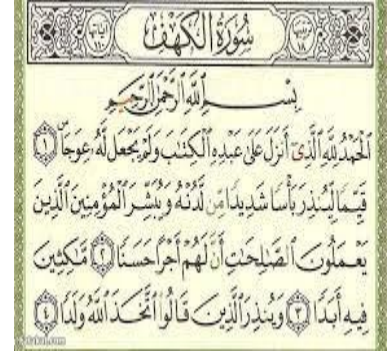 سُورَةُ الْكَهْفِ
بِسْمِ ٱللَّهِ ٱلرَّحْمَٰنِ ٱلرَّحِيمِ
ٱلْحَمْدُ لِلَّهِ ٱلَّذِىٓ أَنزَلَ عَلَىٰ عَبْدِهِ ٱلْكِتَٰبَ وَلَمْ يَجْعَل لَّهُۥ عِوَجَاۜ ١
قَيِّمًا لِّيُنذِرَ بَأْسًا شَدِيدًا مِّن لَّدُنْهُ وَيُبَشِّرَ ٱلْمُؤْمِنِينَ ٱلَّذِينَ
يَعْمَلُونَ ٱلصَّٰلِحَٰتِ أَنَّ لَهُمْ أَجْرًا حَسَنًا ٢ مَّٰكِثِينَ
فِيهِ أَبَدًا ٣ وَيُنذِرَ ٱلَّذِينَ قَالُوا۟ ٱتَّخَذَ ٱللَّهُ وَلَدًا ٤